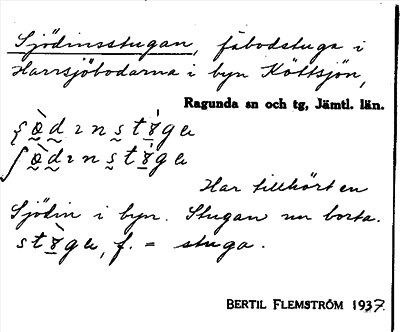 Sjödinsstugan, fäbodstuga i
Harrsjöbodarna i byn Köttsjön,
Ragunda sn och tg, Jämtl. län.
Har tillhört en
Sjödin i byn. Stugan nu borta.
f. = stuga.
BERTIL FLEMSTRÖM 1937.